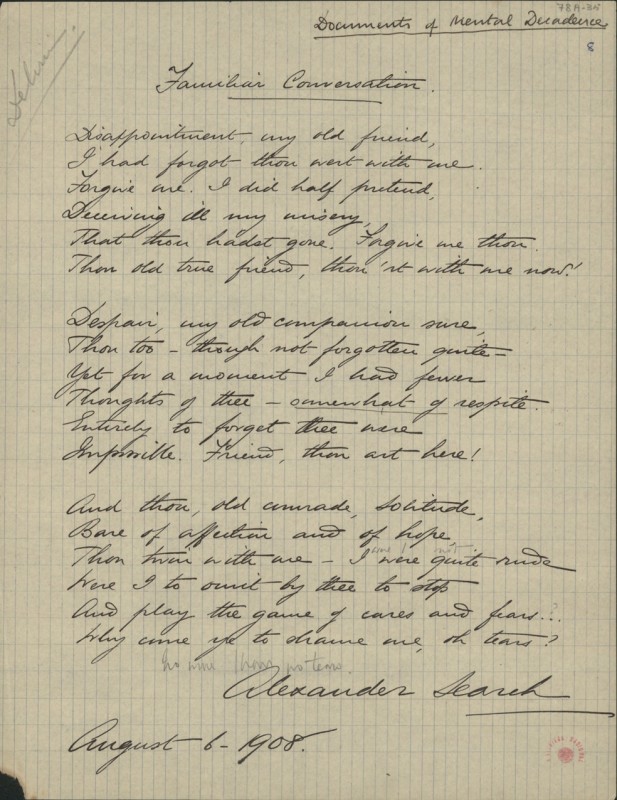 78A-35
Documents of Mental Decadence.
8
Delirium.
Familiar Conversation.
Disappointment, my old friend,
I had forgot thou wert with me.
Forgive me. I did half pretend,
Deceiving ill my misery,
That thou hadst gone. Forgive me thou.
Thou old true friend, thou'rt with me now!
Despair, my old companion sure,
Thou too – though not forgotten quite –
Yet for a moment I had fewer
Thoughts of thee – somewhat of respite.
Entirely to forget thee were
Impossible. Friend, thou art here!
And thou, old comrade, Solitude,
Bare of affection and of hope,
not
Thou twin with me – I were quite rude
Were I to omit by thee to stop
And play the game of cares and fears...
Why come ye to shame me, oh tears?
no tears.
Alexander Search
August 6 – 1908.
BIBLIOTECA NACIONAL